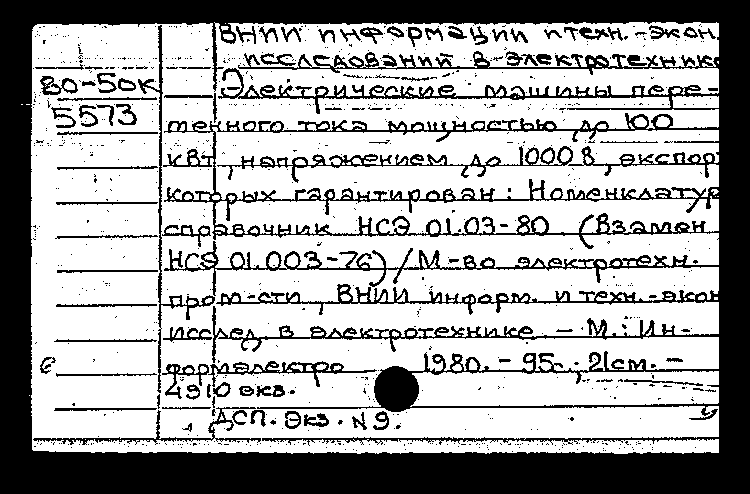 ВНИИ информации и техн.-экон.
исследований в электротехнике
80-50к
Электрические машины пере-
5573
менного тока мощностью до 100
квт, напряжением до 1000 в, экспорт
которых гарантирован: Номенклатур
справочник НСЭ 01.03-80 (Взамен
НСЭ 01.003-76) / М-во электротехн.
пром-сти, ВНИИ информ. и техн.-экон
исслед. в электротехнике - М.: Ин-
формэлектро 1980. - 95. ; 21см. -
4910 экз.
ДСП. Экз. N 9.